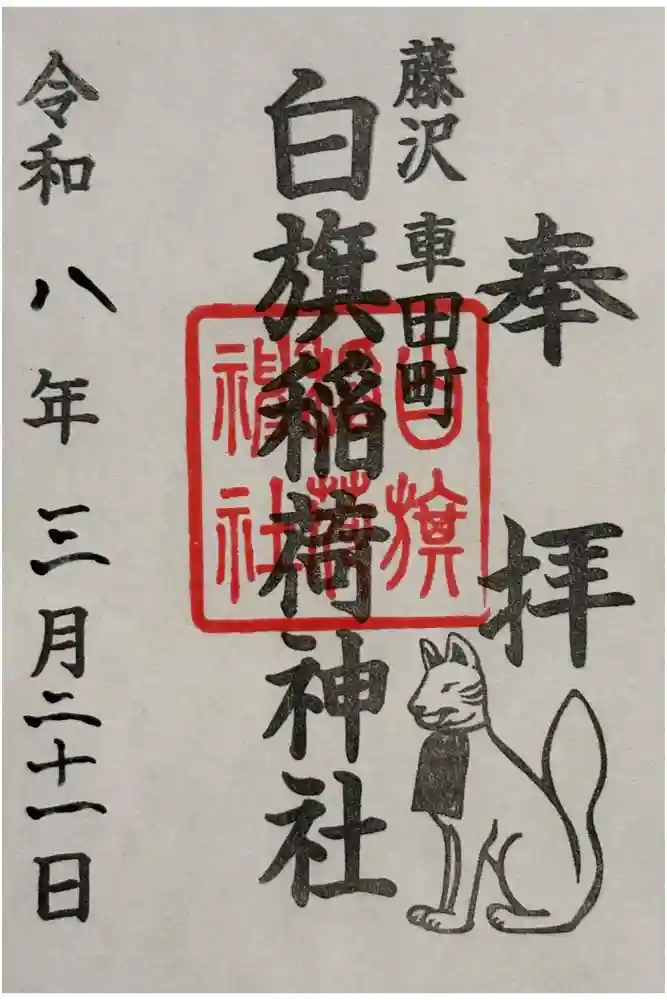 奉拝
藤沢 車田町
白旗稲荷神社
白旗
稲荷
神社
令和 八 年 三 月 二十一 日